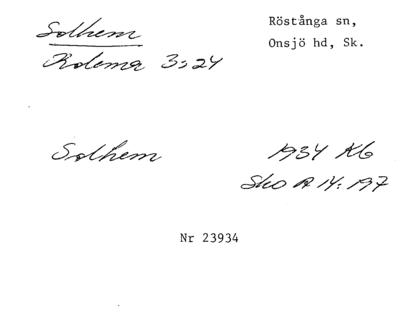 Solhem
Röstånga sn,
Onsjö hd, Sk.
Kolema 3:24
Solhem
1934 Kb
Sko A 14:197
Nr 23934